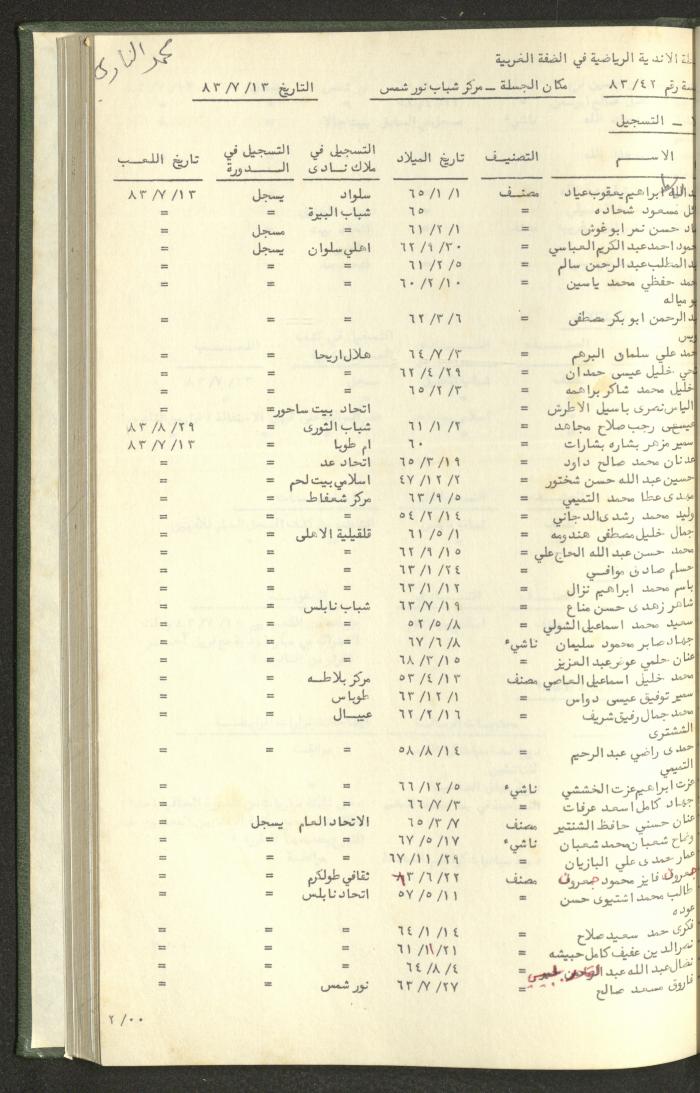 محمد النادى
الاندية الرياضية في الضفة الغربية
رقم ٨٣/٤٢ مكان الجلسة ــ مركز شباب نور شمس التاريخ ٨٣/٧/١٣
ــ التسجيل
الاســـم التصنيف تاريخ الميلاد التسجيل في ملاك نادى التسجيل في الــدورة تاريخ اللعب
ابراهيم يعقوب عياد مصنف ٦٥/١/١ سلواد يسجل ٨٣/٧/١٣
مسعود شحاده = ٦٥ شباب البيرة = =
حسن نمر ابو غوش = ٦١/٢/١ = مسجل =
احمد عبد الكريم العباسي = ٦٢/٩/٣٠ اهلي سلوان يسجل =
المطلب عبد الرحمن سالم = ٦١/٢/٥ = = =
حفظي محمد ياسين = ٦٠/٢/١٠ = = =
مياله
الرحمن ابو بكر مصطفى = ٦٢/٣/٦ = = =
علي سلمان البرهم = ٦٤/٧/٣ هلال اريحا = =
خليل عيسى حمدان = ٦٢/٤/٢٩ = = =
خليل محمد شاكر براهمه = ٦٥/٢/٣ = = =
الياس نصرى باسيل الاطرش = اتحاد بيت ساحور = =
عيسى رجب صلاح مجاهد = ٦١/١/٢ شباب الثورى = ٨٣/٨/٢٩
سمير مزهر بشاره بشارات = ٦٠ ام طوبا = ٨٣/٧/١٣
عدنان محمد صالح داود = ٦٥/٣/١٩ اتحاد عد = =
حسين عبد الله حسن شختور = ٤٧/١٢/٢ اسلامي بيت لحم = =
مهدى عطا محمد التميمي = ٦٣/٩/٥ مركز شعفاط = =
وليد محمد رشدى الدجاني = ٥٤/٢/١٤ = = =
جمال خليل مصطفى هندومه = ٦١/٥/١ قلقيلية الاهلى = =
محمد حسن عبد الله الحاج علي = ٦٢/٩/١٥ = = =
حسام صادق موافي = ٦٣/١/٢٤ = = =
باسم محمد ابراهيم نزال = ٦٣/١/١٢ = = =
شاهر زهدى حسن مناع = ٦٣/٧/١٩ شباب نابلس = =
سعيد محمد اسماعيل الشولي = ٥٢/٥/٨ = = =
جهاد صابر محمود سليمان ناشيء ٦٧/٦/٨ = = =
عنان حلمي عوض عبد العزيز = ٦٨/٣/١٥ = = =
محمد خليل اسماعيل العاصي مصنف ٥٣/٤/١٣ مركز بلاطه = =
سمير توفيق عيسى دواس = ٦٣/١٢/١ طوباس = =
محمد جمال رفيق شريف = ٦٢/٢/١٦ عيبال = =
الششترى
حمدى راضي عبد الرحيم = ٥٨/٨/١٤ = = =
التميمي
عزت ابراهيم عزت الخششي ناشيء ٦٦/١٢/٥ = = =
جهاد كامل اسعد عرفات = ٦٦/٧/٣ = = =
عنان حسني حافظ الشنتير مصنف ٦٥/٣/٧ الاتحاد العام يسجل =
وضاح شعبان محمد شعبان ناشيء ٦٧/٥/١٧ = = =
عمار حمدى علي البازيان = ٦٧/١١/٢٩ = = =
فايز محمود مصنف ٦/٢٢ ثقافي طولكرم = =
طالب محمد اشتيوى حسن = ٥٧/٥/١١ اتحاد نابلس = =
عوده
فكرى حمد سعيد صلاح = ٦٤/١/١٤ = = =
نصر الدين عفيف كامل حبيشه = ٦١/١/٢١ = = =
نضال عبد الله = ٦٤/٨/٤ = = =
فاروق مسعد صالح = ٦٣/٧/٢٧ نور شمس = =
٢/٠٠